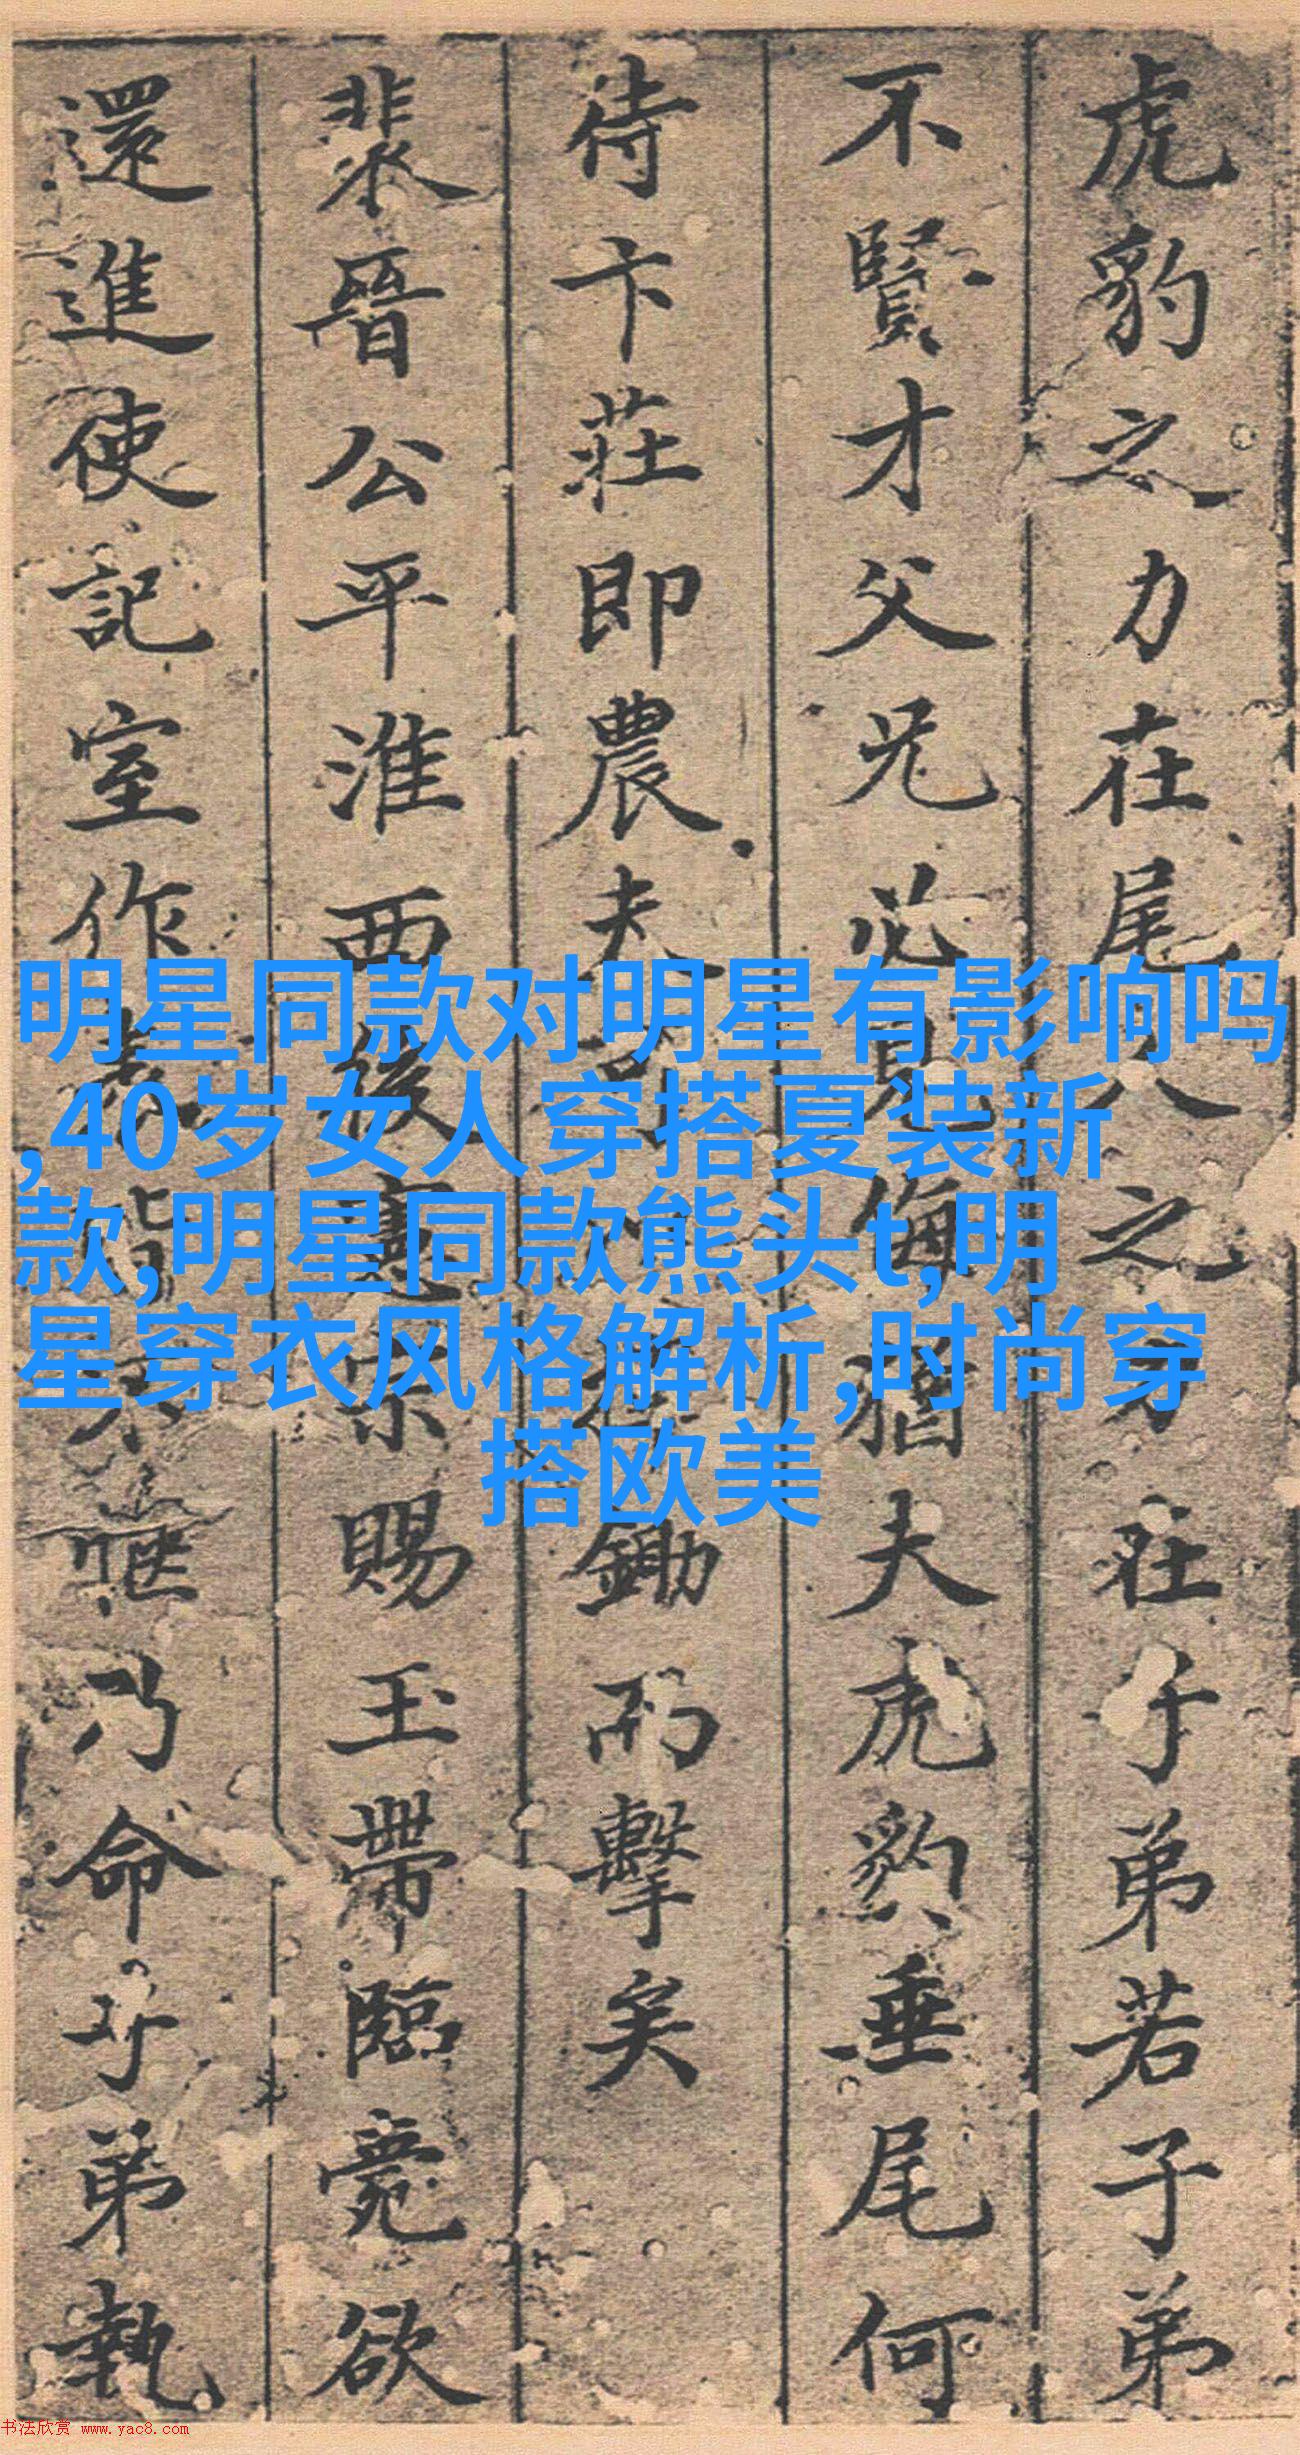 虎豹之力在尾人之力在子弟若子弟
不賢才父兄必見侮猶夫虎豹垂尾何
待卞莊即農夫可鋤而擊矣
裴晉公平淮西後憲宗賜玉帶臨薨欲
還進使記室作表皆不愜乃命子弟執
明星同款对明星有影响吗
,40岁女人穿搭夏装新
款,明星同款熊头t,明
星穿衣风格解析,时尚穿
搭欧美
书法欣赏 www.yac8.com